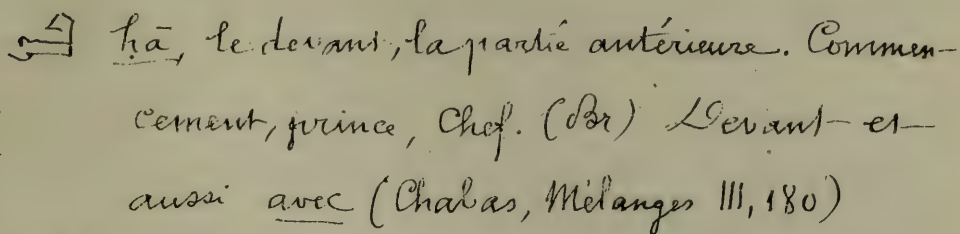 ḥā, le devant, la partie antérieure. Commen-
cement, prince, Chef. (Br) Devant et
aussi avec (Chabas, Mélanges III, 180)